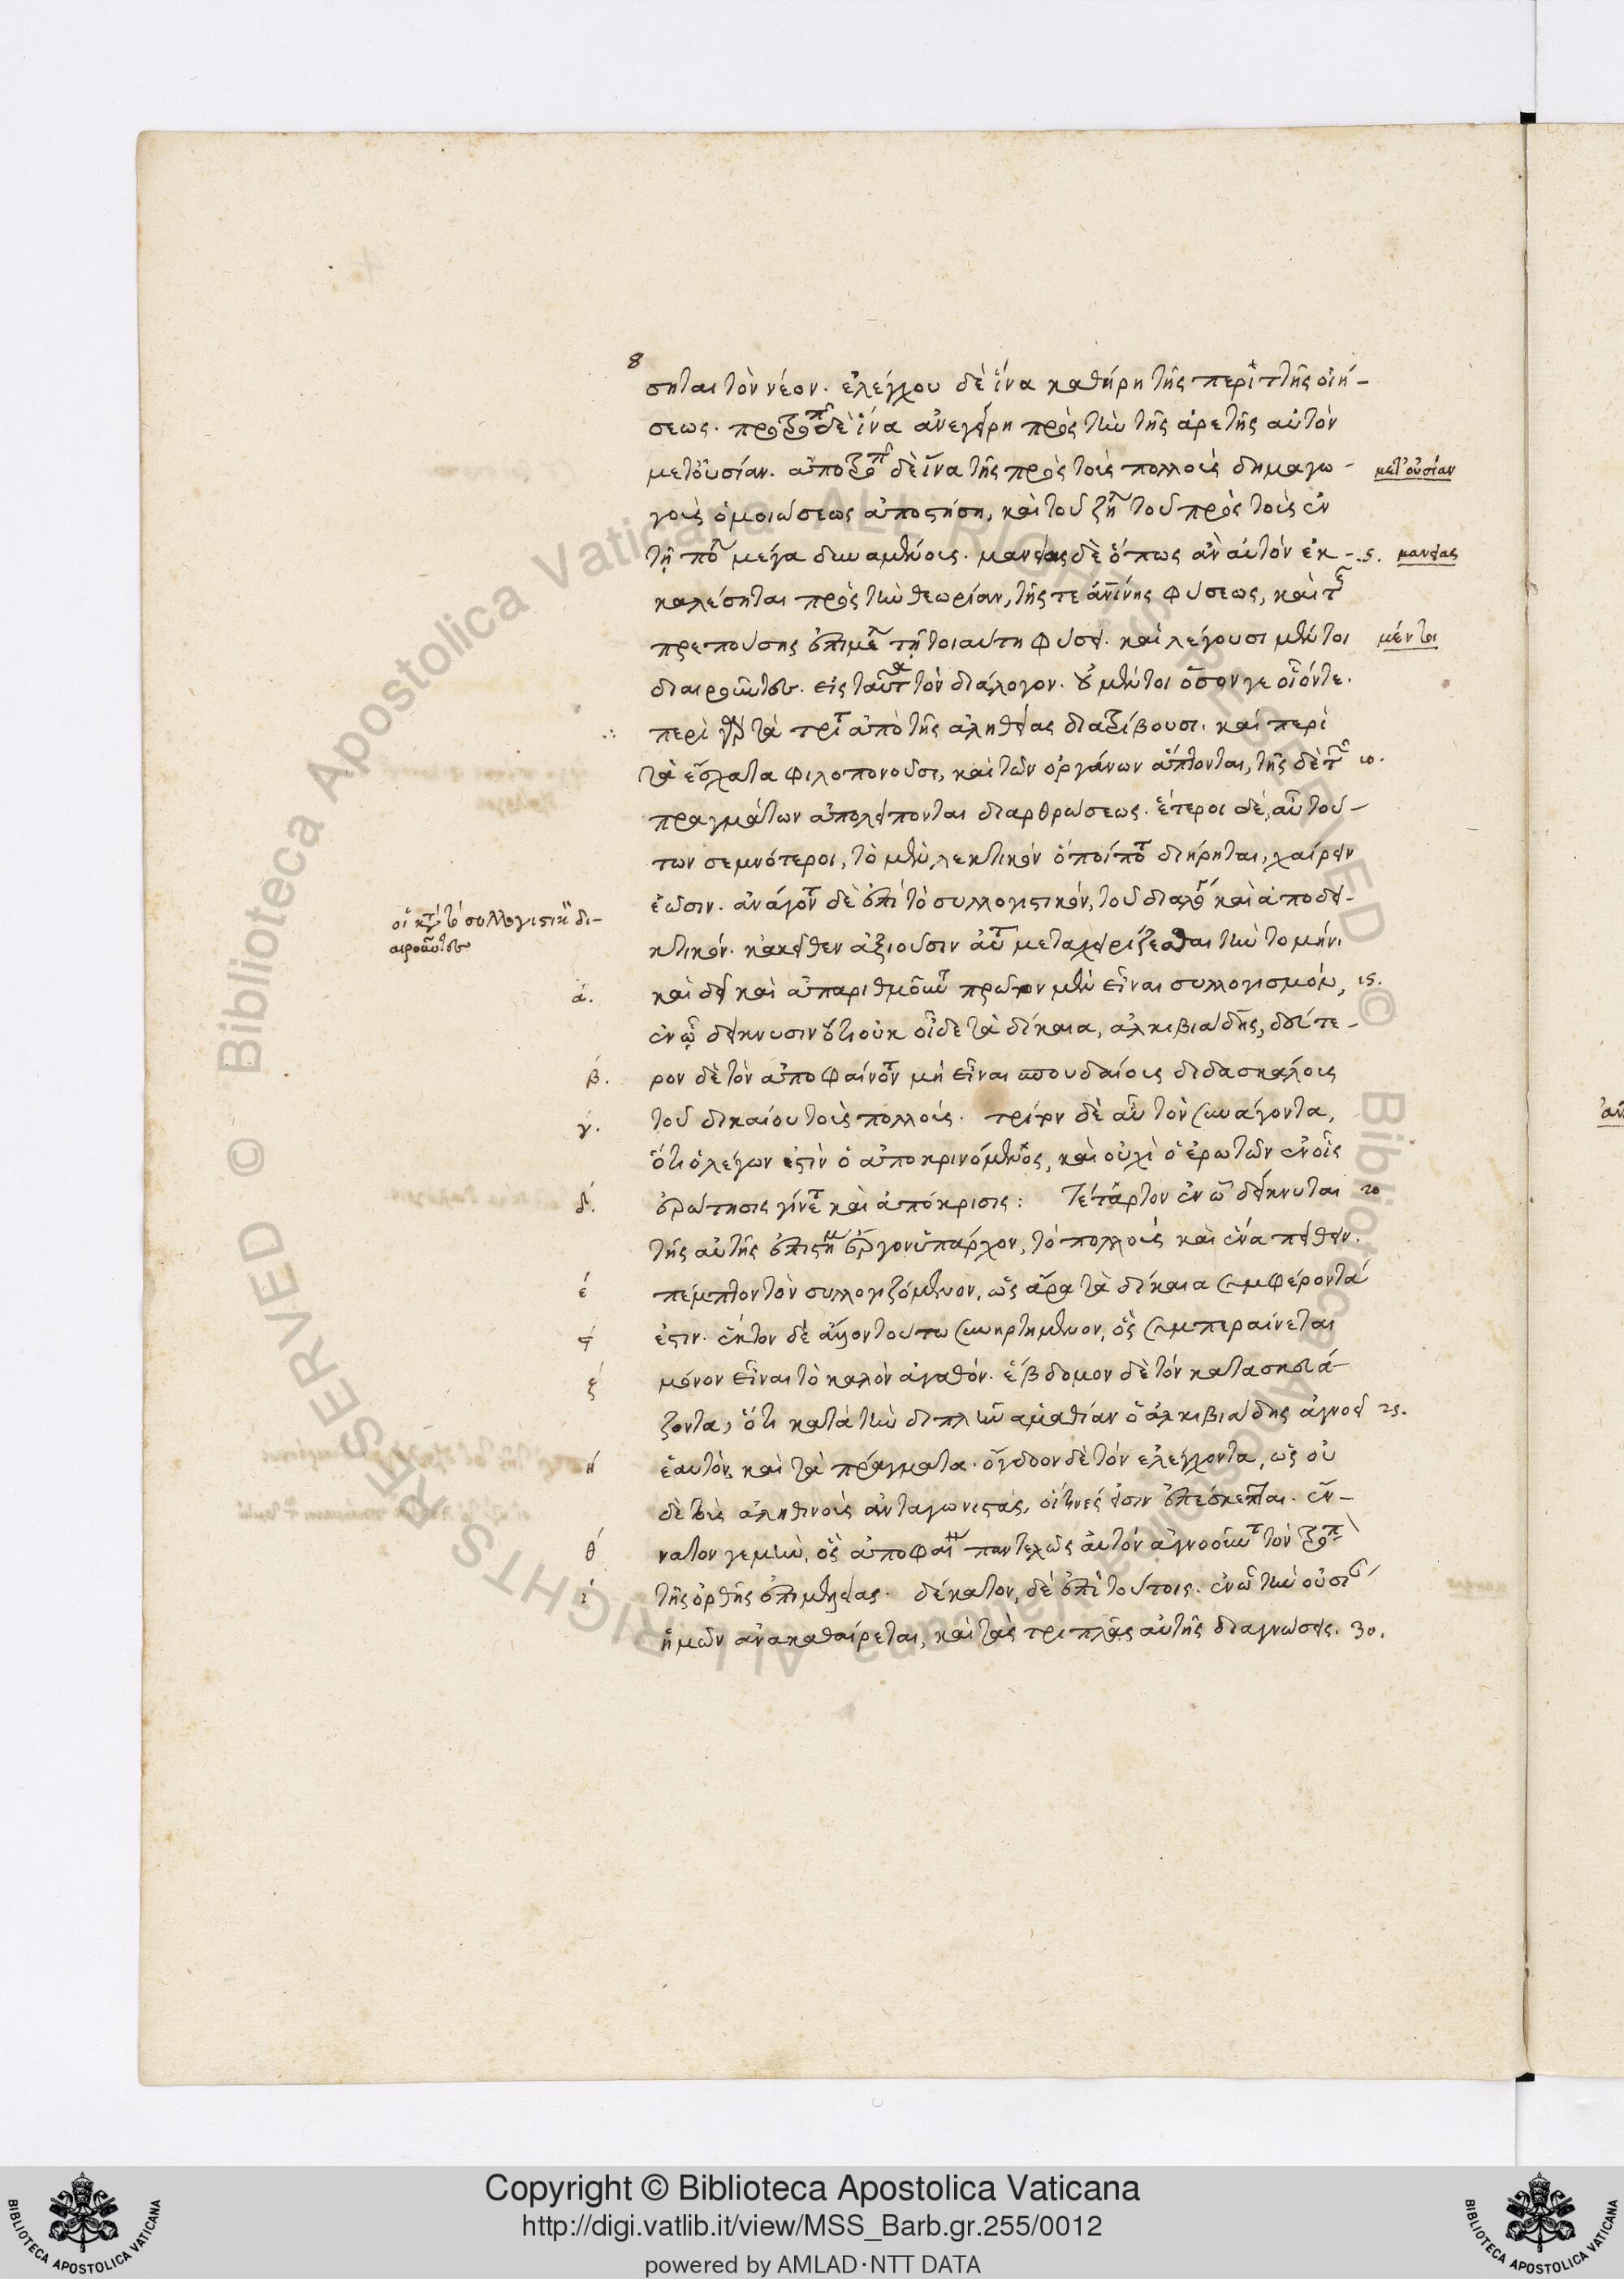 8
σηται τὸν νέον. ἐλέγχου δὲ ἵνα καθήρη τῆς περιττῆς οἰή-
σεως. προτροπ δὲ ἵνα ἀνεγείρη πρὸς τὴν τῆς ἀρετῆς αὐτὸν
μετουσίαν. ἀποτροπ δὲ ἵνα τῆς πρὸς τοὺς πολλοὺς δημαγω-
μετουσίαν
γοὺς ὁμοιώσεως ἀποστήση, καὶ τοῦ ζη τοῦ πρὸς τοὺς ἐν
τῆ πο μέγα δυναμένους. μανείας δὲ ὅπως ἂν αὐτὸν ἐκ-
5.
μανείας
καλέσηται πρὸς τὴν θεωρίαν, τῆς τε ἀνινης φύσεως, καὶ τ
πρεπούσης ἐπιμε τῆ τοιαύτη φύσει. καὶ λέγουσι μέντοι
μέντοι
διαιροῦντες. εἰς ταῦτα τὸν διάλογον. οὐ μέντοι ὅσον γε οἷόν τε.
περὶ γὰρ τὰ τρί ἀπὸ τῆς ἀληθείας διατρίβουσι. καὶ περὶ
τὰ ἔσχατα φιλοπονοῦσι, καὶ τῶν ὀργάνων ἅπτονται, τῆς δὲ τ
10.
πραγμάτων ἀπολείπονται διαρθρώσεως. ἕτεροι δὲ, αὖ τού-
των σεμνότεροι, τὸ μὲν λεκτικὸν ὁποίπο διήρηται, χαίρειν
ἐῶσιν. ἀνάγον δὲ ἐπὶ τὸ συλλογιστικόν, τοῦ διαλο καὶ ἀποδει-
οἱ κτ τὸ συλλογιστικ δι-
αιροῦντες
κτικόν. κἀκεῖθεν ἀξιοῦσιν αὐτ μεταχειρίζεσθαι τὴν τομήν.
ά.
καὶ δεῖ καὶ ἀπαριθμοῦν πρῶτον μὲν εἶναι συλλογισμόν,
15.
ἐν ᾧ δείκνυσιν ὅτι οὐκ οἶδε τὰ δίκαια, ἀλκιβιάδης, δεύτε-
β.
ρον δὲ τὸν ἀποφαίνον μὴ εἶναι σπουδαίους διδασκάλους
γ.
τοῦ δικαίου τοὺς πολλούς. τρίτον δὲ αὖ τὸν συνάγοντα,
ὅτι ὁ λέγων ἐστὶν ὁ ἀποκρινόμενος, καὶ οὐχὶ ὁ ἐρωτῶν ἐν οἷς
δ.
ἐρώτησις γίνε καὶ ἀπόκρισις: Τέταρτον ἐν ᾧ δείκνυται
20
τῆς αὐτῆς ἐπιστη ἔργον ὑπάρχον, τὸ πολλοὺς καὶ ἕνα πείθειν.
έ
πέμπτον τὸν συλλογιζόμενον, ὡς ἄρα τὰ δίκαια συμφέροντά
ς
ἐστιν. ἕκτον δὲ ἄλλον τούτω συνηρτημένον, ὃς συμπεραίνεται
ζ
μόνον εἶναι τὸ καλὸν ἀγαθόν. ἕβδομον δὲ τὸν κατασκευά-
ζοντα, ὅτι κατὰ τὴν διπλῆν ἀμαθίαν ὁ ἀλκιβιάδης ἀγνοεῖ
25.
ή
ἑαυτὸν καὶ τὰ πράγματα. ὄγδοον δὲ τὸν ἐλέγχοντα, ὡς οὐ
δὲ τοὺς ἀληθινοὺς ἀνταγωνιστάς, οἵτινές εἰσιν ἐπέσκεπται. ἔν-
θ
νατον γε μὴν, ὃς ἀποφαι παντελῶς αὐτὸν ἀγνοοῦντ τὸν τροπ
ί
τῆς ὀρθῆς ἐπιμελείας. δέκατον, δὲ ἐπὶ τούτοις. ἐν ᾧ τὴν οὐσί
ἡμῶν ἀνακαθαίρεται, καὶ τὰς τριπλᾶς αὐτῆς διαγνώσεις.
30.
Copyright © Biblioteca Apostolica Vaticana
http://digi.vatlib.it/view/MSS_Barb.gr.255/0012
powered by AMLAD·NTT DATA